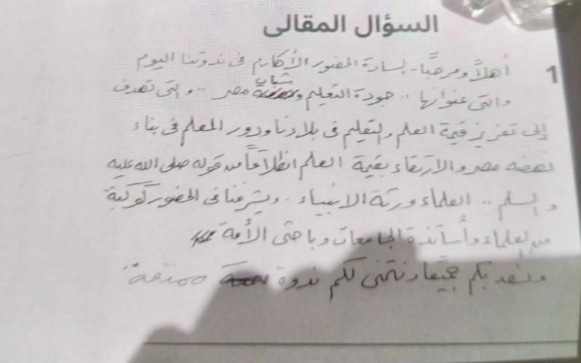 السؤال المقالى
1 أهلاً ومرحبًا بسادة الحضور الأكارم فى ندوتنا اليوم
والتى عنوانها .. جودة التعليم وشباب مصر .. والتى تهدف
إلى تعزيز قيمة العلم والتعليم فى بلادنا ودور المعلم فى بناء
نهضه مصر والارتقاء بقيمة العلم انطلاقاً من قوله صلى الله عليه
وسلم .. العلماء ورثة الانبياء .. ويشرفنا فى الحضور كوكبة
من العلماء وأساتذة الجامعات وباحثى الأمة
ونسعد بكم جميعًا ونتمنى لكم ندوة ممتعة